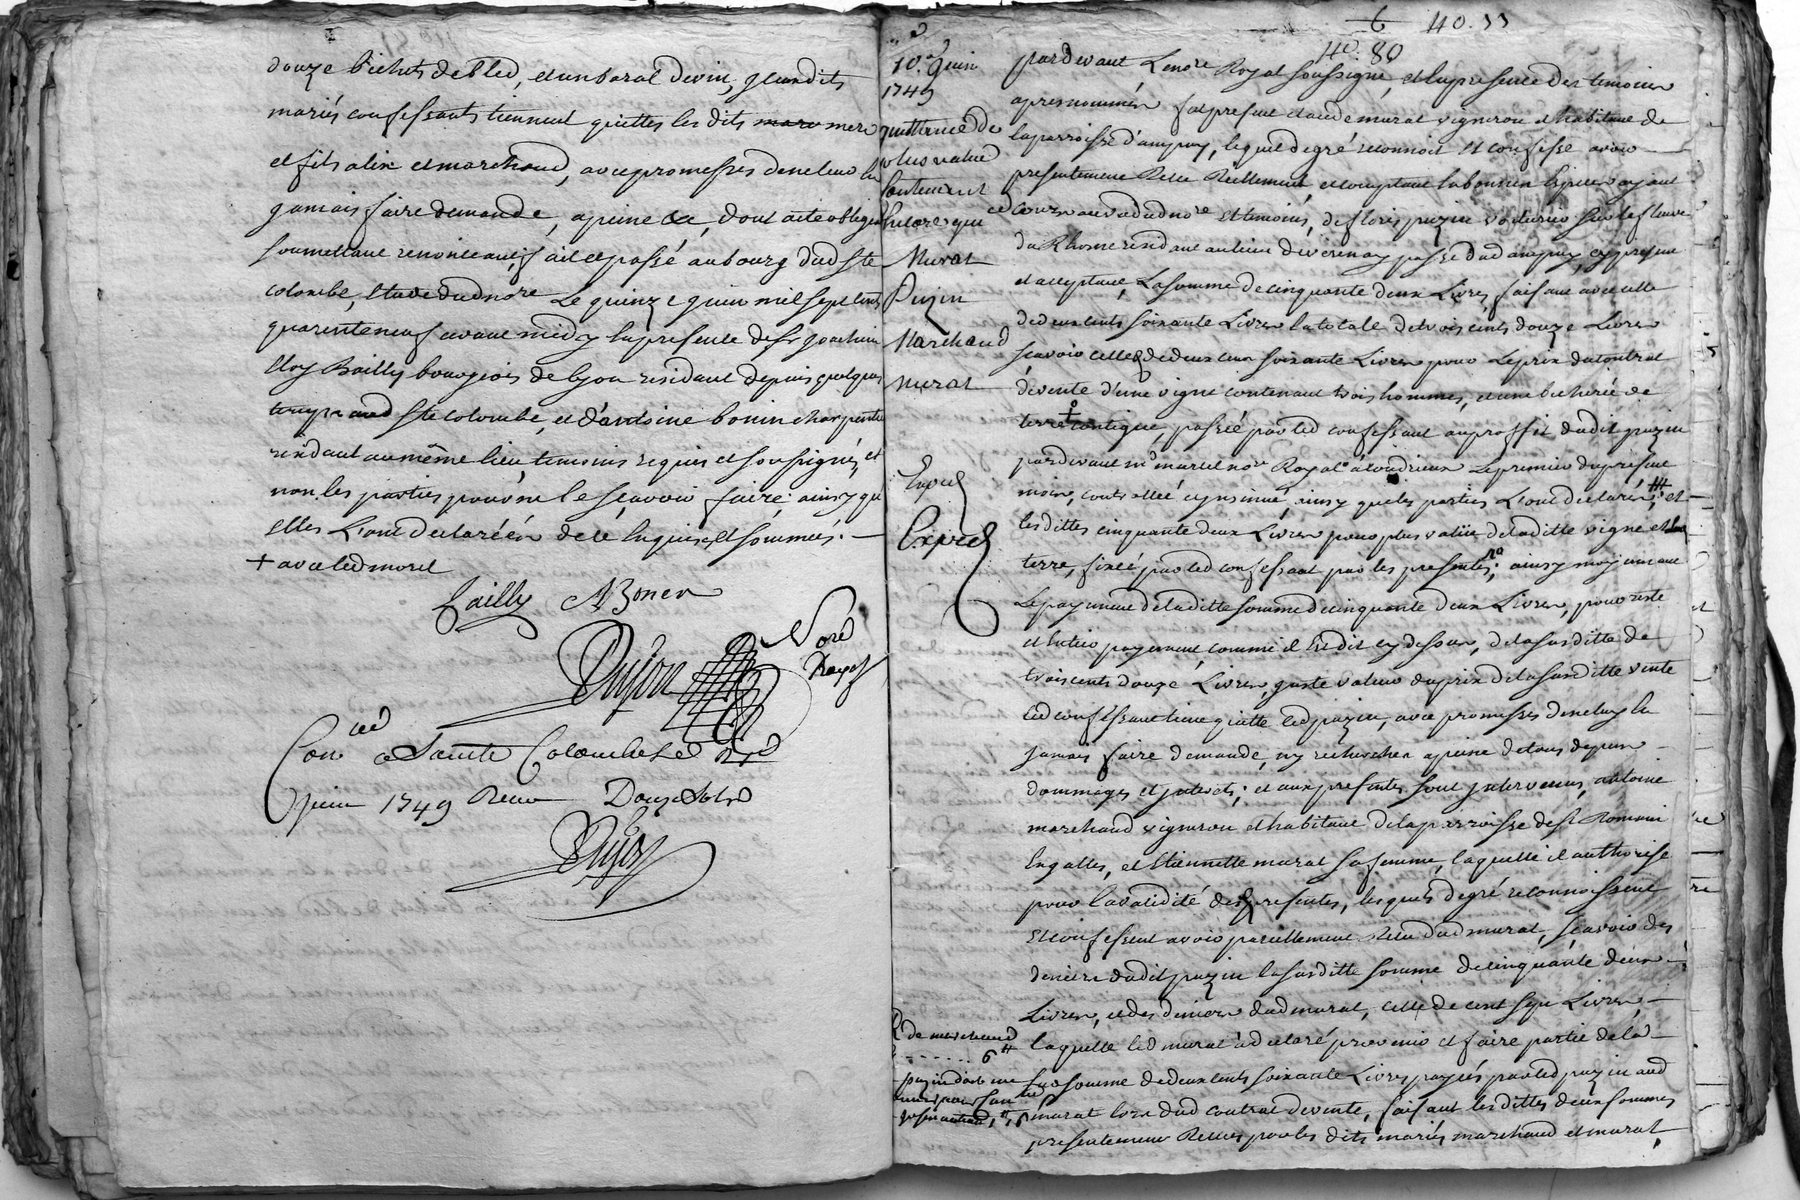 douze bichets de bled, et un baral de vin, quoy lesdits
mariés confessants tiennent quittes les dits mere
et fils alix et marchand, avec promesses de ne leur en
jamais faire demande, a peine &c, dont acte obligé
soumettant renonceant, fait et passé au bourg dud ste
colombe, étude dud nore Le quinze juin mil sept cents
quarente neuf avant midy en presence de sr joachim
Eloy Bailly bourgeois de lyon residant depuis quelques
temps aud ste colombe, et d'antoine bonin charpentier
residant au même lieu temoins requis et soussignés, et
non les parties pour ne le sçavoir faire ainsy qu
elles L'ont declaréen de ce enquises et sommés.
+ avec led morel
Bailly A Bonen
Dujon Nore Royal
Con lé a Sainte Colombe Le
juin 1749 Reçu Douze sols
Dujon
6 40.11
40.80
10e juin
1749
quittance de
plus value
contenant
encore que
Murat
Puzin
Marchand
murat
Exped
Exped
pardevant Le nore Royal soussigné, et en presence des temoins
apres nommés fut present claude murat vigneron et habitant de
la parroisse d'ampuy, lequel de gré reconnoit et confesse avoir
presentement Receu Réellement et comptant en bonnes Especes ayant
cours au vû dud nore et temoins, de floris puzin voiturier sur le fleuve
du Rhosne residant au lieu de verenay parroisse dud ampuy, cy present
et acceptant, La somme de cinquante deux Livres, faisant avec celle
de deux cents soixante Livres la totale de trois cents douze Livres
sçavoir celle de deux cens soixante Livres pour Le prix du contrat
de vente d'une vigne contenant trois hommes, et une bicherée de
terre contigue, passée par led confessant au proffit dudit puzin
pardevant me martel nore Royal à condrieux Le premier du present
mois, controllé et insinué, ainsy que les parties L'ont declarés, et
les dittes cinquante deux Livres pour plus value de la ditte vigne et
terre, fixéé par led confessant par les presentes, ainsy moyennant
Le payement de la ditte somme de cinquante deux Livres, pour reste
et Entier payement, comme il Est dit cy dessus, de la susditte de
trois cents douze Livres, juste valeur du prix de la susditte vente
led confessant tient quitte led puzin, avec promesses de ne luy en
jamais faire demande, ny rechercher a peine de tous depens
dommages et interets; et aux presentes sont intervenus, antoine
marchand vigneron et habitant de la parroisse de st Romain
En galles, et Etiennette murat sa femme, laquelle il authorise
pour la validité des presentes, lesquels de gré reconnoissent
et confessent avoir pareillement Receu dud murat, sçavoir des
deniers dudit puzin la susditte somme de cinquante deux
Livres, et des deniers dud murat, celle de cent sept Livres,
laquelle led murat a declaré provenir et faire partie de la
susd somme de deux cents soixante Livres payés par led puzin aud
murat lors dud contrat de vente, faisant les dittes deux sommes
presentement Receues par les dits mariés marchand et murat,
R de marchand
6 tt
puzin doit